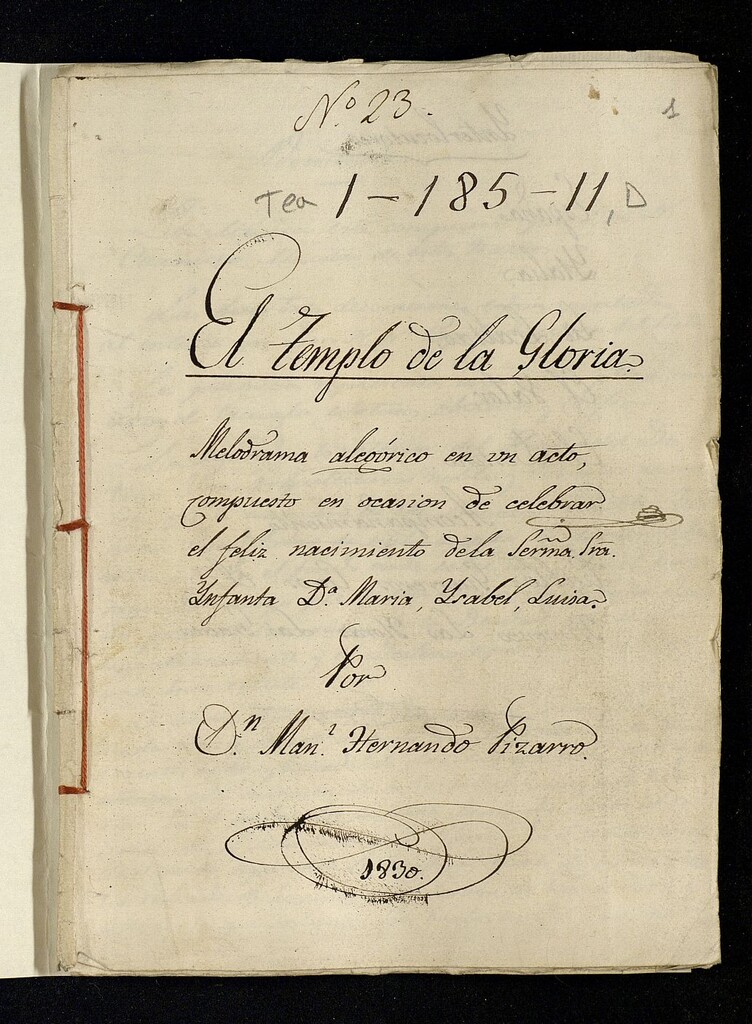 Nº 23.
1
Tea 1-185-11, D
El Templo de la Gloria.
Melodrama alegórico en un acto,
compuesto en ocasion de celebrar
el feliz nacimiento de la Serma. Sra.
Ynfanta Dª Maria, Ysabel, Luisa.
Por
Dn. Manl. Hernando Pizarro.
1830.